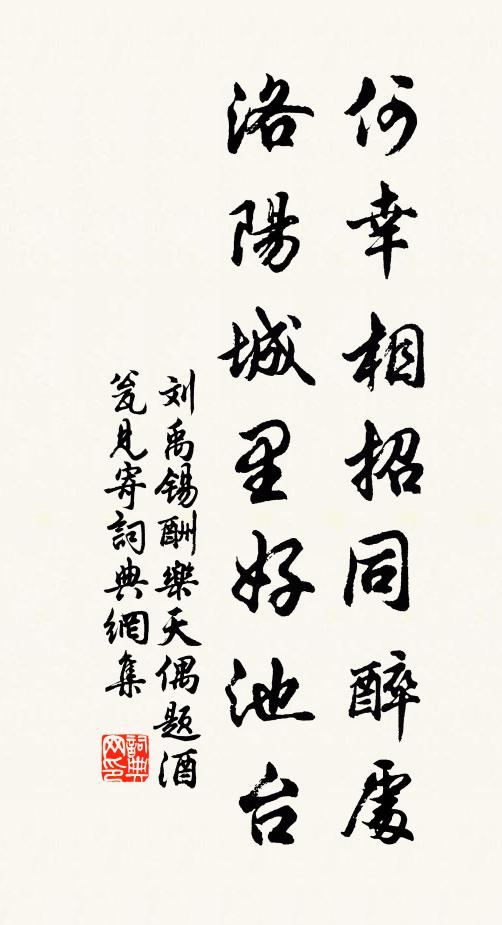 何幸相招同醉處
洛陽城里好池台
刘禹锡酬樂天偶题酒
瓮見寄詞典網集
詞典
网印